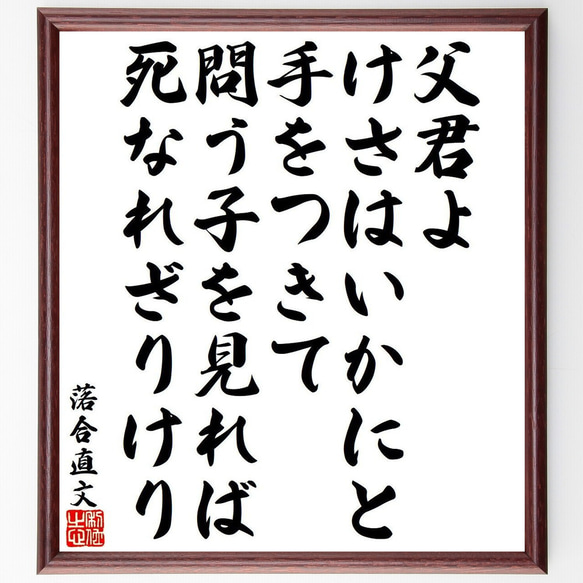 父君よ
けさはいかにと
手をつきて
問う子を見れば
死なれざりけり
落合直文